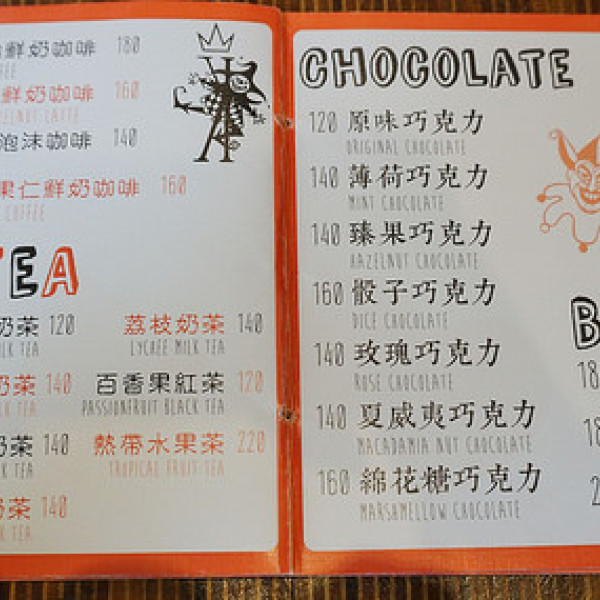 鮮奶咖啡 180
COFFEE
鮮奶咖啡 160
HAZELNUT LATTE
泡沫咖啡 140
果仁鮮奶咖啡 160
COFFEE
TEA
奶茶 120
MILK TEA
荔枝奶茶 140
LYCHEE MILK TEA
奶茶 140
MILK TEA
百香果紅茶 120
PASSIONFRUIT BLACK TEA
奶茶 140
MILK TEA
熱帶水果茶 220
TROPICAL FRUIT TEA
奶茶 140
MILK TEA
CHOCOLATE
120 原味巧克力
ORIGINAL CHOCOLATE
140 薄荷巧克力
MINT CHOCOLATE
140 臻果巧克力
HAZELNUT CHOCOLATE
160 骰子巧克力
DICE CHOCOLATE
140 玫瑰巧克力
ROSE CHOCOLATE
140 夏威夷巧克力
MACADAMIA NUT CHOCOLATE
160 綿花糖巧克力
MARSHMELLOW CHOCOLATE
B
18
18
2